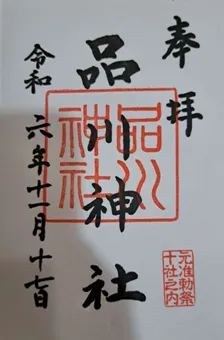 奉拝
品川神社
品川神社
元准勅祭
十社之内
令和六年十一月十七日